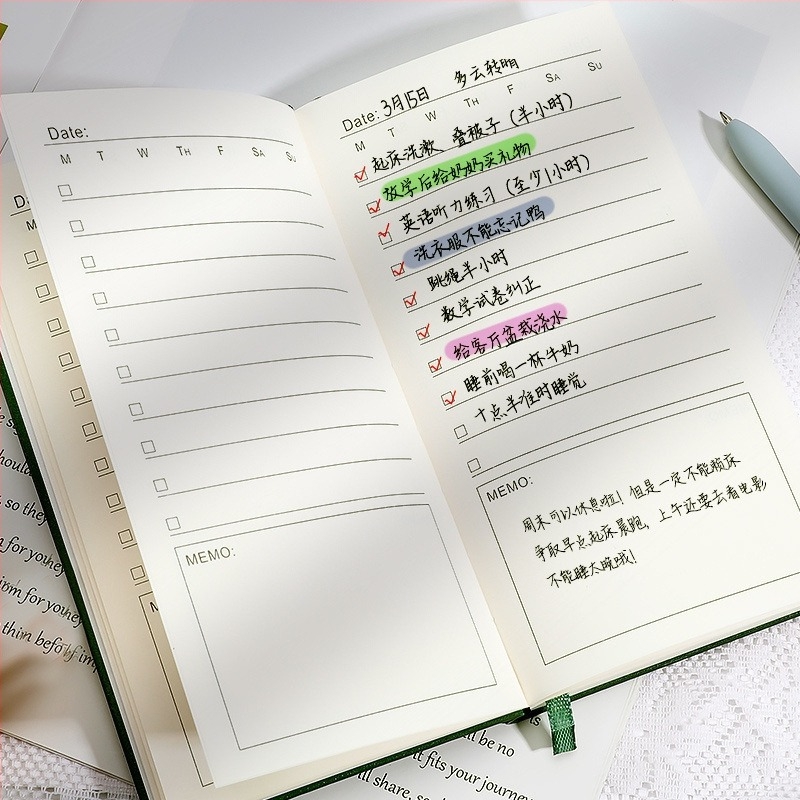 Date:
M T W TH F SA SU
MEMO:
Date: 3月15日 多云转晴
M T W TH F SA SU
起床洗漱、叠被子（半小时）
放学后给奶奶买礼物
英语听力练习（至少1小时）
洗衣服不能忘记鸭
跳绳半小时
数学试卷纠正
给客厅盆栽浇水
睡前喝一杯牛奶
十点半准时睡觉
MEMO:
周末可以休息啦！但是一定不能赖床
争取早点起床晨跑，上午还要去看电影
不能睡太晚哦！
D
M
so they
m for you they
irm for you they
thim befo
l be no
it fits your journey
ll share, so